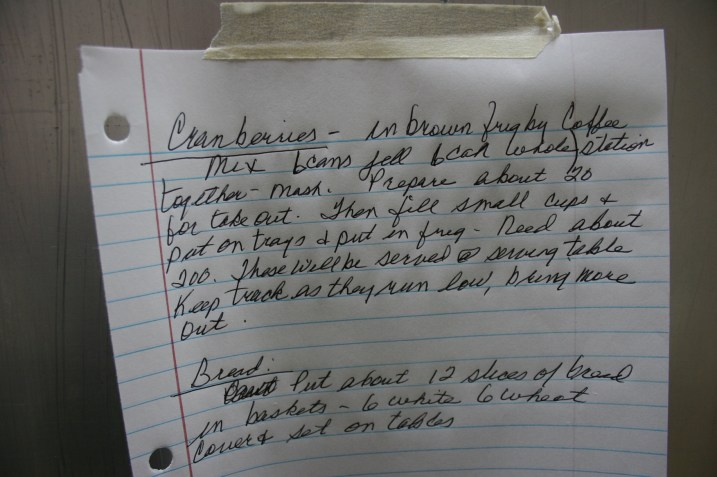 Cranberries - in brown frig by Coffee
Mix 6 cans jell 6 can whole } station
together - mash. Prepare about 20
for take out. Then fill small cups +
put on trays + put in frig - Need about
200. These will be served @ serving table
Keep track as they run low, bring more
out.
Bread:
Put about 12 slices of bread
in baskets - 6 white 6 wheat
Cover + set on tables